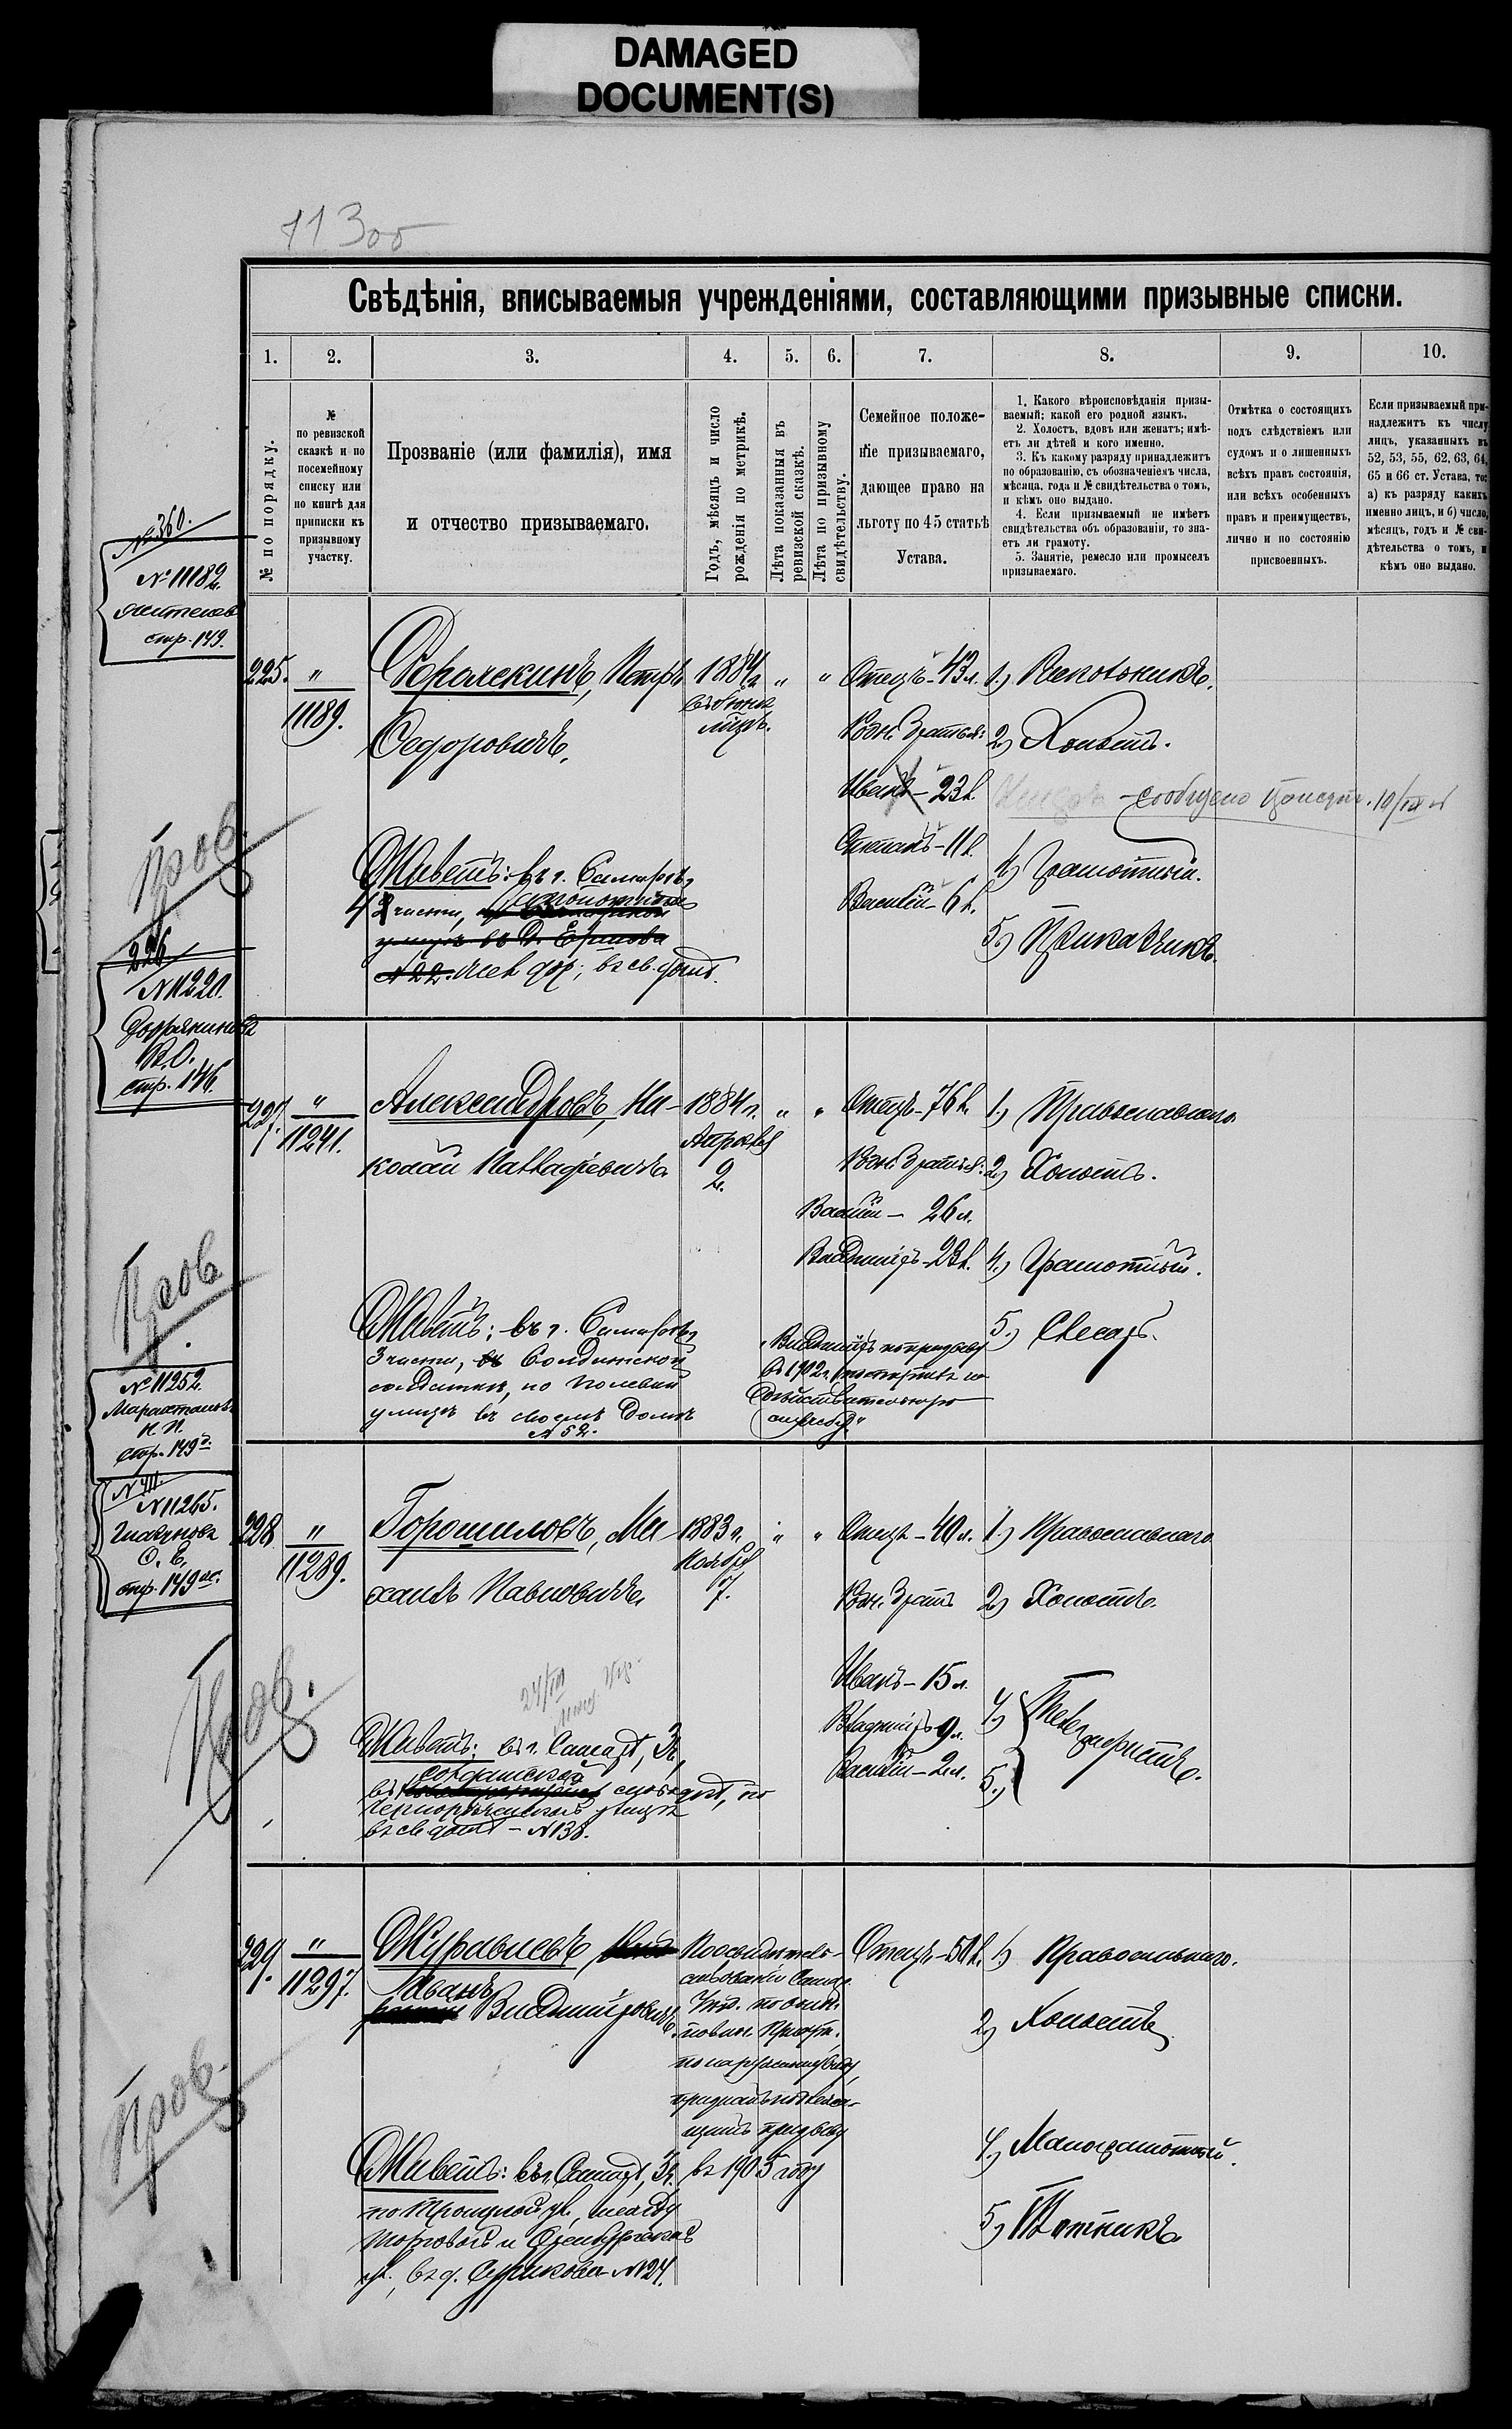 DAMAGED
DOCUMENT(S)
113об
Свѣдѣнія, вписываемыя учрежденіями, составляющими призывные списки.
1. 2. 3. 4. 5. 6. 7. 8. 9. 10.
№ по порядку.
№
по ревизской
сказкѣ и по
посемейному
списку или
по книгѣ для
приписки къ
призывному
участку.
Прозваніе (или фамилія), имя
и отчество призываемаго.
Годъ, мѣсяцъ и число
рожденія по метрикѣ.
Лѣта показанныя въ
ревизской сказкѣ.
Лѣта по призывному
свидѣтельству.
Семейное положе-
ніе призываемаго,
дающее право на
льготу по 45 статьѣ
Устава.
1. Какого вѣроисповѣданія призы-
ваемый; какой его родной языкъ.
2. Холостъ, вдовъ или женатъ; имѣ-
етъ ли дѣтей и кого именно.
3. Къ какому разряду принадлежитъ
по образованію, съ обозначеніемъ числа,
мѣсяца, года и № свидѣтельства о томъ,
и кѣмъ оно выдано.
4. Если призываемый не имѣетъ
свидѣтельства объ образованіи, то зна-
етъ ли грамоту.
5. Занятіе, ремесло или промыселъ
призываемаго.
Отмѣтка о состоящихъ
подъ слѣдствіемъ или
судомъ и о лишенныхъ
всѣхъ правъ состоянія,
или всѣхъ особенныхъ
правъ и преимуществъ,
лично и по состоянію
присвоенныхъ.
Если призываемый при-
надлежитъ къ числу
лицъ, указанныхъ въ
52, 53, 55, 62, 63, 64,
65 и 66 ст. Устава, то:
а) къ разряду какихъ
именно лицъ, и б) число,
мѣсяцъ, годъ и № сви-
дѣтельства о томъ, и
кѣмъ оно выдано.
№ 360.
№ 11182.
стр. 149.
225. " 11189.
Петръ
Федоровичъ.
1884 г.
" "
Отецъ - 43 л.
Родн. братья:
Иванъ - 23 л.
Степанъ - 11 л.
Василій - 6 л.
1)
2) Холостъ.
сообщено
4) Грамотный.
5) Прикащикъ.
Живетъ: въ г. Самарѣ,
4 части,
улицѣ въ д. Ершова
№ 22. въ св. домѣ.
Пров.
226
№ 11220.
В. О.
стр. 146
227. " 11241.
Александровъ, Ни-
колай
1884 г.
Апрѣля
2.
" "
Отецъ - 76 л.
Родн. братья:
Василій - 26 л.
Владиміръ - 23 л.
1.) Православнаго.
2) Холостъ.
4.) Грамотный.
5.) Слесарь.
Живетъ: въ г. Самарѣ,
3 части, въ Солдатской
слободкѣ, по Полевой
улицѣ въ своемъ домѣ
№ 52.
Владиміръ по призыву
въ 1902 г.
Пров
№ 11252.
И. П.
стр. 149
№ 411.
№ 11265.
О. Е.
стр. 149
228 " 11289.
Горошиловъ, Ми-
хаилъ Павловичъ.
1883 г.
Ноября
7.
" "
Отецъ - 40 л.
Родн. братъ
Иванъ - 15 л.
Владиміръ - 9 л.
Василій - 2 л.
1.) Православнаго
2) Холостъ.
4.)
5.)
Телеграфистъ.
24/III
Живетъ: въ г. Самарѣ, 3 ч,
въ Солдатской слободѣ, по
Чернорѣченской улицѣ
въ св домѣ - № 138.
Пров.
229. " 11297.
Журавлевъ,
Иванъ
Владиміровичъ.
По освидѣтель-
ствованіи Самар.
Уѣзд. по воин.
повин. Присут.
по наружному виду,
признанъ подлежа-
щимъ призыву
въ 1905 году
Отецъ - 50 л.
1.) Православнаго.
2) Холостъ
4.) Малограмотный.
5.) Плотникъ.
Живетъ: въ г. Самарѣ, 3 ч.
по Троицкой ул., между
Торговой и Оренбургской
ул., въ д. № 24.
Пров.